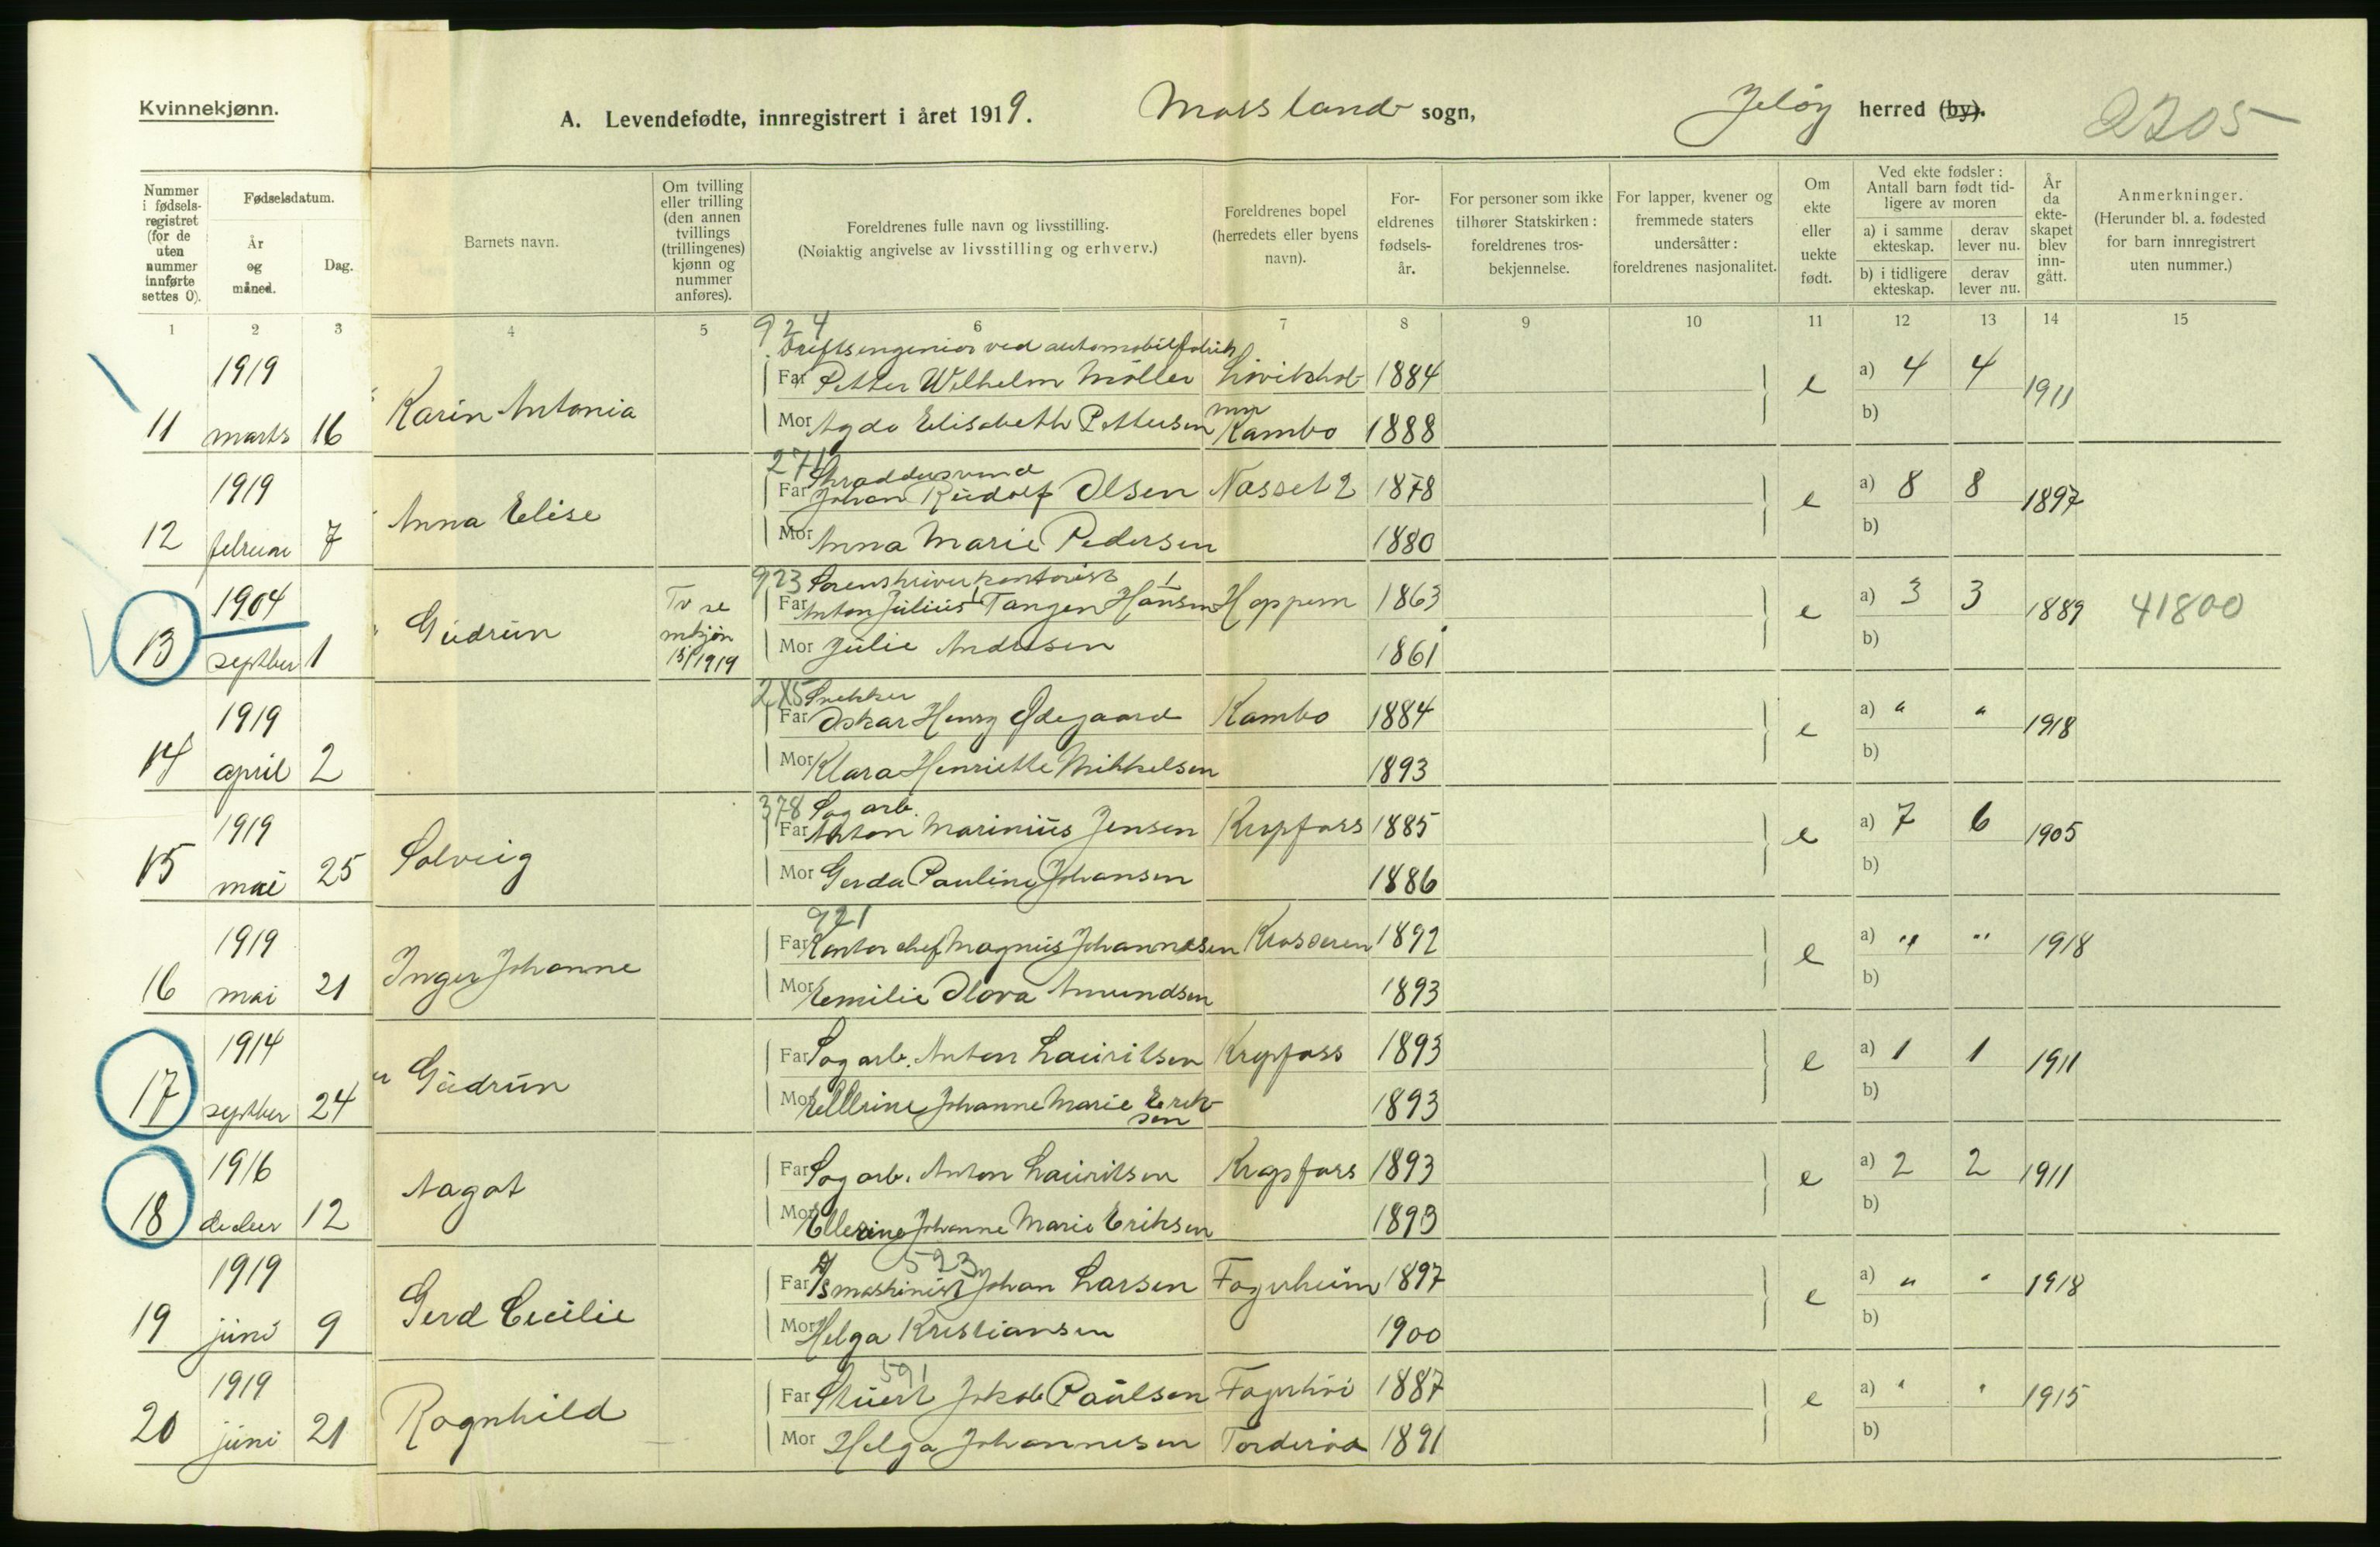 Kvinnekjønn.
A. Levendefødte, innregistrert i året 1919. Mossland sogn, Jeløy herred (by). 2205
Nummer i fødsels-registret (for de uten nummer innførte settes 0).
Fødselsdatum.
År og måned.
Dag.
Barnets navn.
Om tvilling eller trilling (den annen tvillings (trillingenes) kjønn og nummer anføres).
Foreldrenes fulle navn og livsstilling.
(Nøiaktig angivelse av livsstilling og erhverv.)
Foreldrenes bopel (herredets eller byens navn).
For-eldrenes fødsels-år.
For personer som ikke tilhører Statskirken: foreldrenes tros-bekjennelse.
For lapper, kvener og fremmede staters undersåtter: foreldrenes nasjonalitet.
Om ekte eller uekte født.
Ved ekte fødsler: Antall barn født tid-ligere av moren
a) i samme ekteskap.
derav lever nu.
b) i tidligere ekteskap.
derav lever nu.
År da ekte-skapet blev inn-gått.
Anmerkninger.
(Herunder bl. a. fødested for barn innregistrert uten nummer.)
1 2 3 4 5 6 7 8 9 10 11 12 13 14 15
924
Driftsengeniør ved automobilfabrik
1919 Far Petter Wilhelm Møller 1884 a) 4 4
11 marts 16 Karin Antonia e 1911
Mor Agda Elisabeth Pettersen Kambo 1888 b)
271 Skræddersvend
1919 Far Johan Rudolf Olsen Nosset 2 1878 a) 8 8
12 februar 7 Anna Elise e 1897
Mor Anna Marie Pedersen 1880 b)
923 Sorenskriverkontorist
1904 Far Anton Julius Tangen Hansen Hoppern 1863 a) 3 3
13 septber 1 Gudrun e 1889 41800
1919 Mor Julie Andresen 1861 b)
285 Snekker
1919 Far Oskar Henry Ødegaard Kambo 1884 a) " "
14 april 2 e 1918
Mor Klara Henriette Mikkelsen 1893 b)
378 Sagarb.
1919 Far Anton Marinius Jensen Krapfoss 1885 a) 7 6
15 mai 25 Solveig e 1905
Mor Gerda Pauline Johansen 1886 b)
921
1919 Far Kontorchef Magnus Johannesen Krosseren 1892 a) " "
16 mai 21 Inger Johanne e 1918
Mor Emilie Olava Amundsen 1893 b)
1914 Far Sagarb. Anton Lauritsen Krapfoss 1893 a) 1 1
17 septber 24 " Gudrun e 1911
Mor Ellerine Johanne Marie Erik-sen 1893 b)
1916 Far Sagarb. Anton Lauritsen Krapfoss 1893 a) 2 2
18 decber 12 Aagot e 1911
Mor Ellerine Johanne Marie Eriksen 1893 b)
523
1919 Far maskinist Johan Larsen Fagerheim 1897 a) " "
19 juni 9 Gerd Cecilie e 1918
Mor Helga Kristiansen 1900 b)
591
1919 Far Stuert Jakob Paulsen Fagerhøi 1887 a) " "
20 juni 21 Ragnhild e 1915
Mor Helga Johannesen Torderød 1891 b)